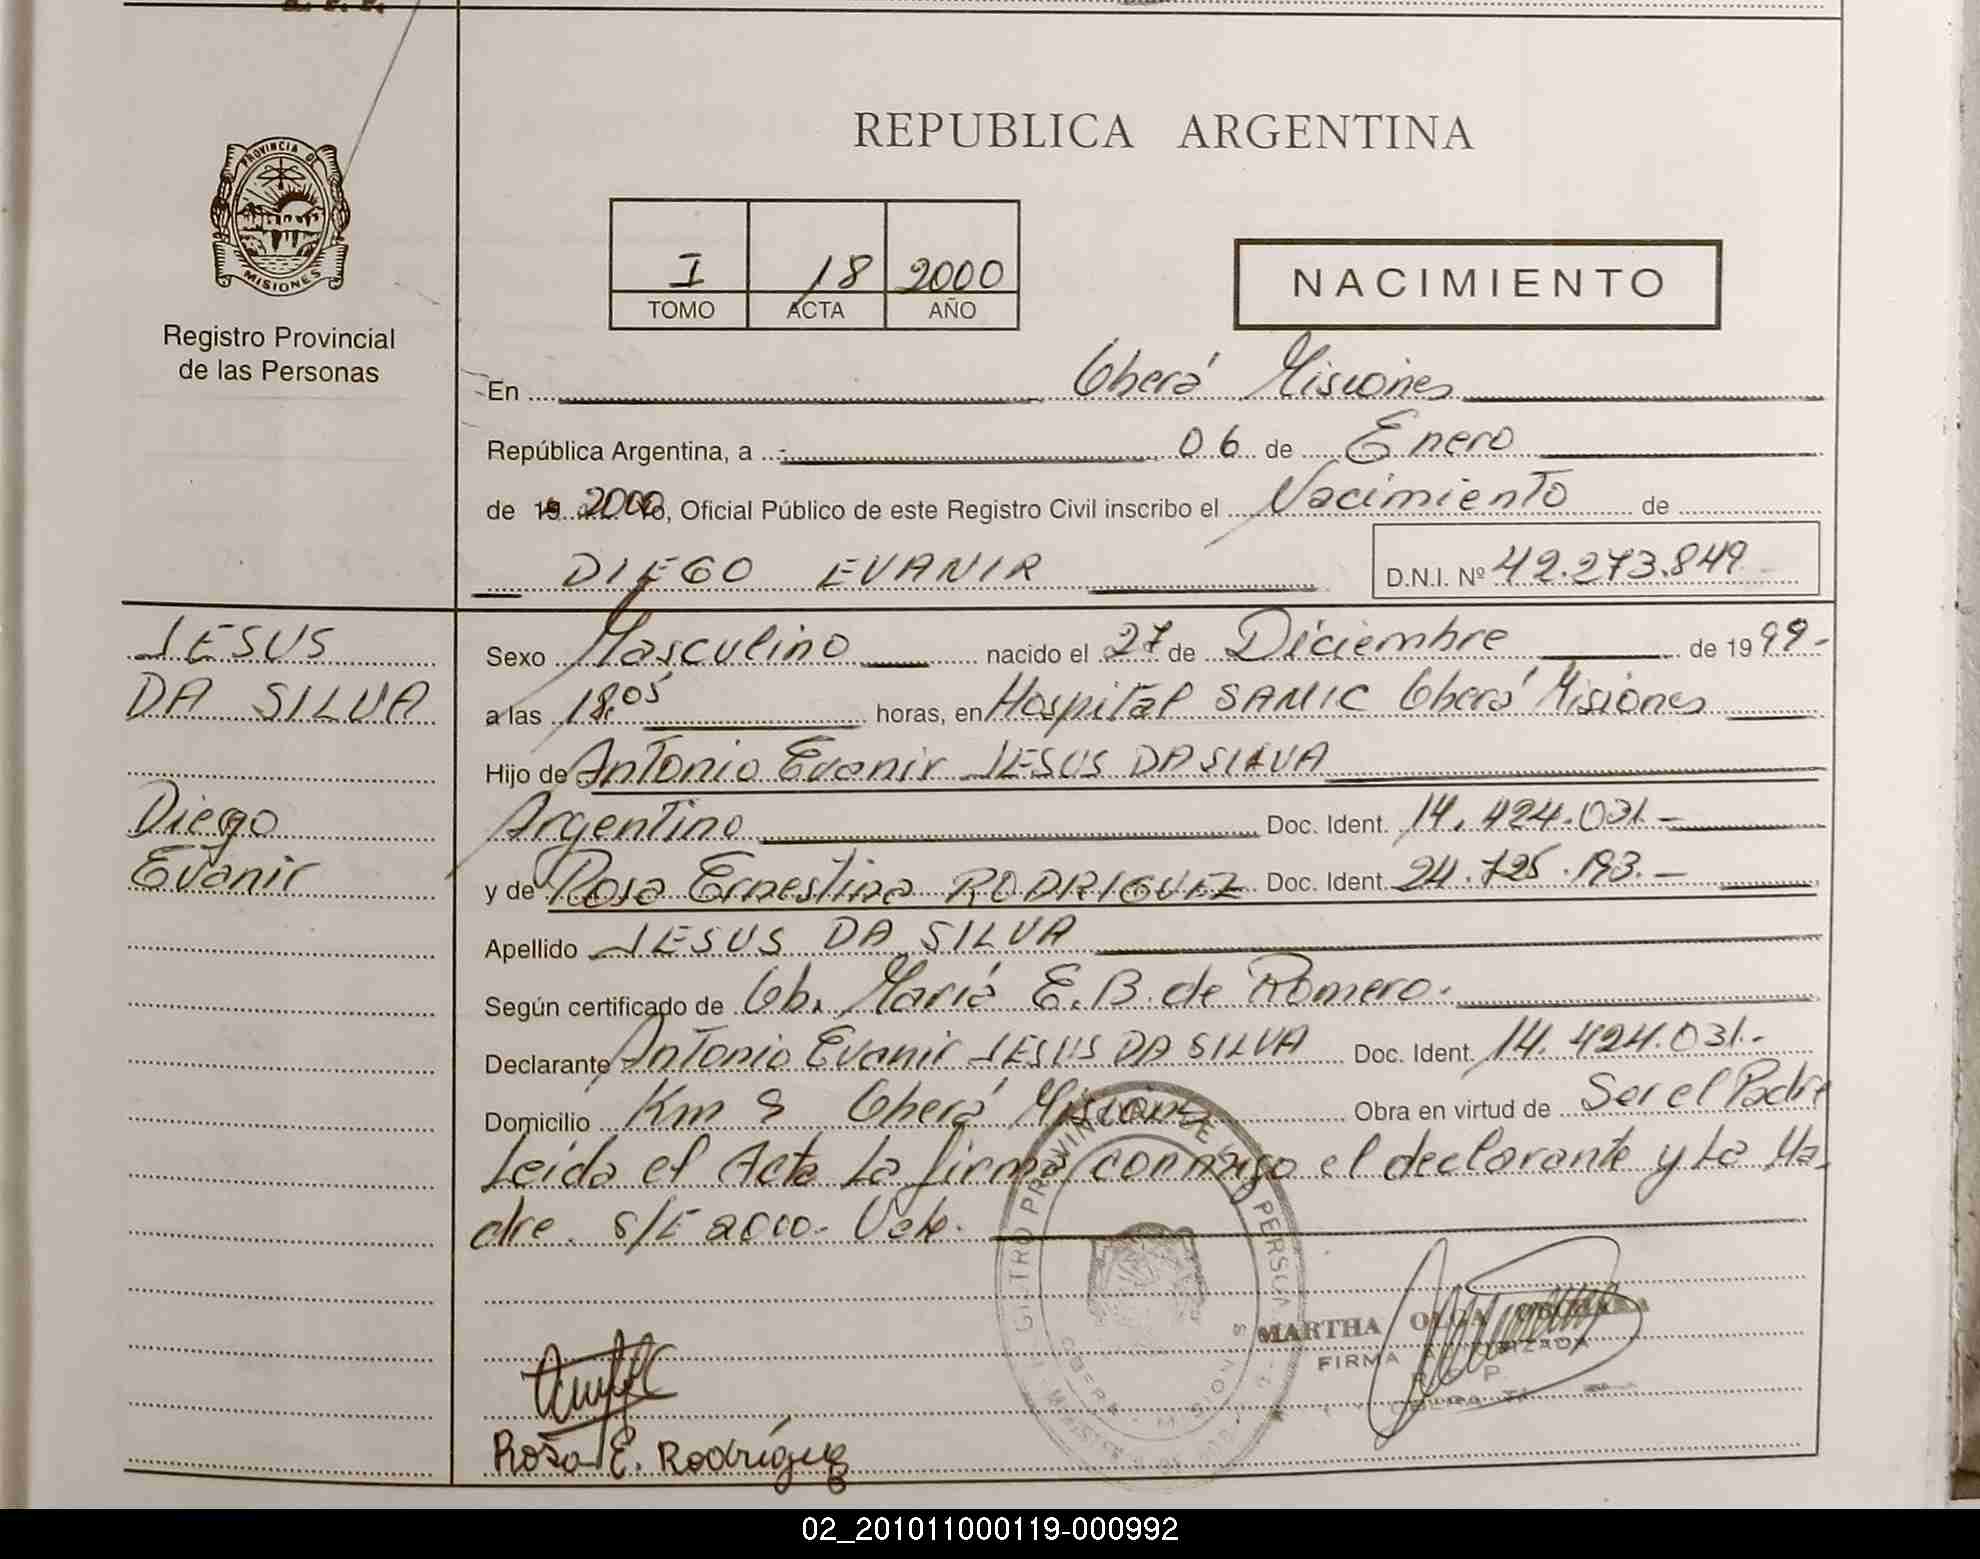 PROVINCIA DE
MISIONES
Registro Provincial
de las Personas
REPUBLICA ARGENTINA
I 18 2000
TOMO ACTA AÑO
NACIMIENTO
En Oberá Misiones
República Argentina, a 06 de Enero
de 19 2000 Yo, Oficial Público de este Registro Civil inscribo el Nacimiento de
DIEGO EVANIR D.N.I. Nº 42.273.849
JESUS
DA SILVA
Diego
Evanir
Sexo Masculino nacido el 27 de Diciembre de 1999-
a las 18.05 horas, en Hospital SAMIC Oberá Misiones
Hijo de Antonio Evanir JESUS DA SILVA
Argentino Doc. Ident. 14.424.031.-
y de Rosa Ernestina RODRIGUEZ Doc. Ident. 24.725.193.-
Apellido JESUS DA SILVA
Según certificado de Ob. María E.B. de Romero.
Declarante Antonio Evanir JESUS DA SILVA Doc. Ident. 14.424.031.-
Domicilio Km 8 Oberá Misiones Obra en virtud de Ser el Padre
Leída el Acta La firma conmigo el declarante y La Ma-
dre. S/E 2000- Vale.
MARTHA OLGA
FIRMA AUTORIZADA
Rosa E. Rodríguez
02_201011000119-000992